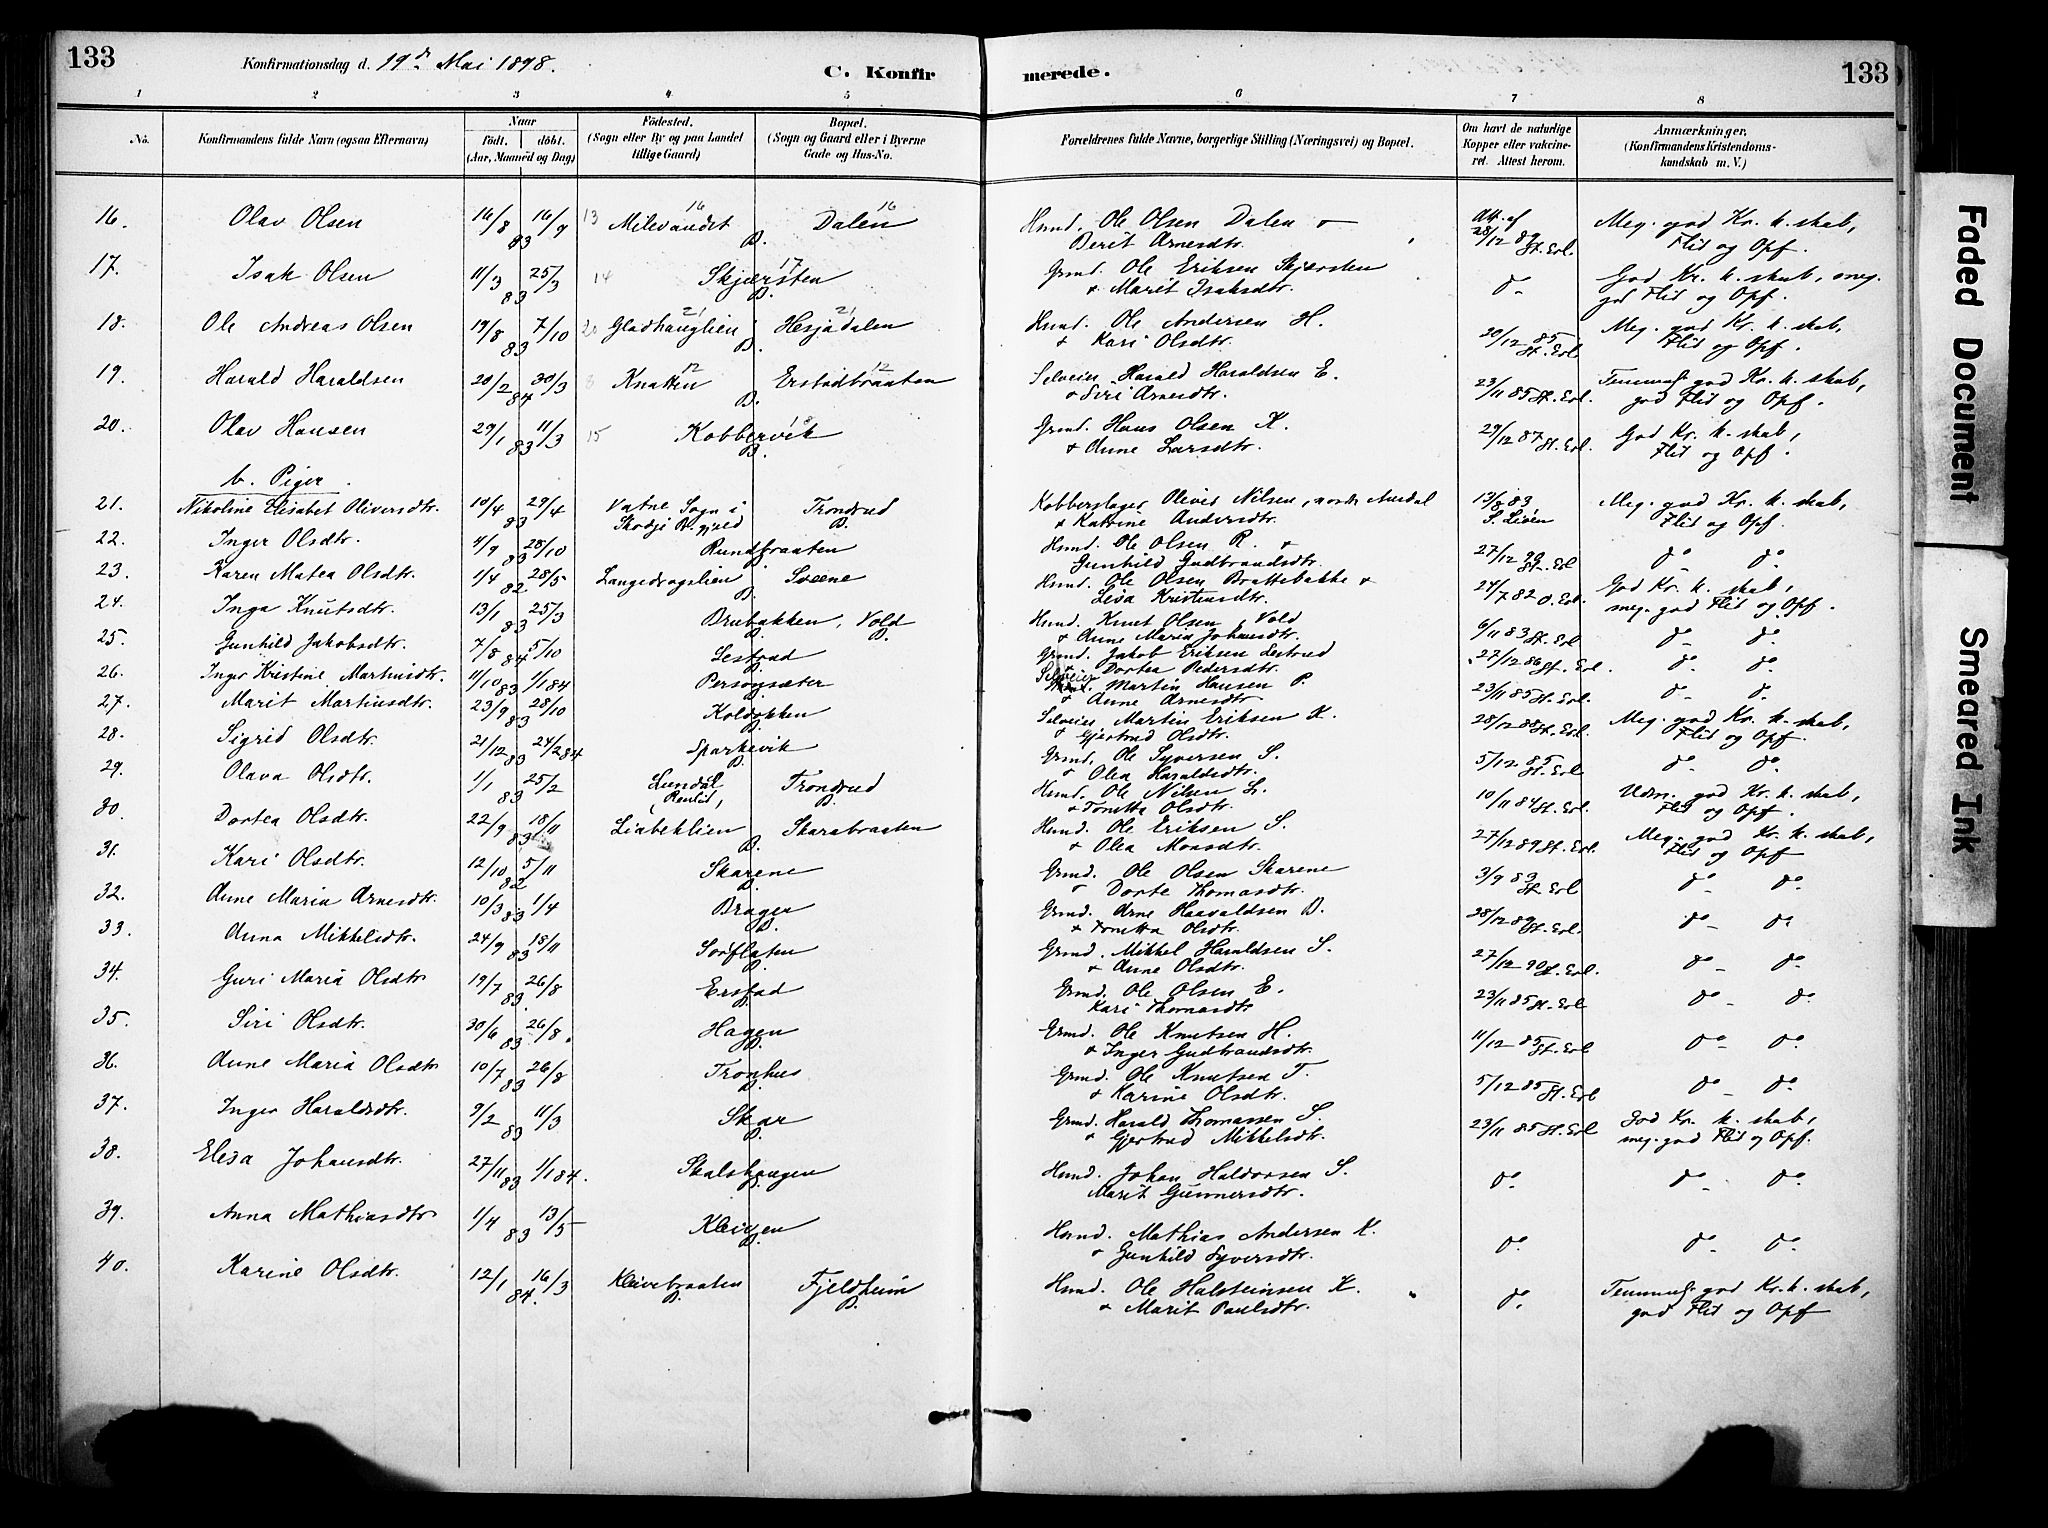 133
Konfirmationsdag d. 19de Mai 1898.
C. Konfir merede.
133
1 2 3 4 5 6 7 8
No.
Konfirmandens fulde Navn (ogsaa Efternavn)
Naar
født. døbt.
(Aar, Maaned og Dag)
Fødested.
(Sogn eller By og paa Landet
tillige Gaard)
Bopæl.
(Sogn og Gaard eller i Byerne
Gade og Hus-No.
Forældrenes fulde Navne, borgerlige Stilling (Næringsvei) og Bopæl.
Om havt de naturlige
Kopper eller vakcine-
ret. Attest herom.
Anmærkninger.
(Konfirmandens Kristendoms-
kundskab m. V.)
16. Olav Olsen 16/8 83 16/9 13 Milevandet 16 Dalen 16 B. Husmd. Ole Olsen Dalen o Berit Arnesdtr. Att. af 28/12 89 St. Erl. Meg. god Kr. k. skab, Flid og Opf.
17. Isak Olsen 11/3 83 25/3 14 Skjærsten 17 B. Grmd. Ole Eriksen Skjærsten + Marit Isaksdtr. do God Kr. k. skab, meg. god Flid og Opf.
18. Ole Andreas Olsen 19/8 83 7/10 20 Gladhauglien 21 Hesjadalen 21 B. Husmd. Ole Andersen H. + Kari Olsdtr. 20/12 85 St. Erl. Meg. god Kr. k. skab, Flid og Opf.
19. Harald Haraldsen 20/2 84 30/3 8 Knatten 12 Erstadbraaten 12 B. Selveier Harald Haraldsen E. + Siri Arnesdtr. 23/11 85 St. Erl. Temmel. god Kr. k. skab, god Flid og Opf.
20. Olav Hansen 29/1 83 11/3 15 Kobbervik 18 B. Grmd. Hans Olsen K. + Anne Larsdtr. 29/12 87 St. Erl. God Kr. k. skab, Flid og Opf.
b. Piger.
21. Nikoline Elisabet Oliversdtr. 10/4 83 29/4 Vatne Sogn i Skodje Pr.gjeld Trondrud B. Kobberslager Oliver Nilsen, nordre Aurdal + Katrine Andersdtr. 13/8 83 S. Lisén Meg. god Kr. k. skab, Flid og Opf.
22. Inger Olsdtr. 4/9 83 28/10 Rundbraaten B. Husmd. Ole Olsen R. + Gunhild Gudbrandsdtr. 27/12 90 St. Erl do do
23. Karen Matea Olsdtr. 1/4 82 28/5 Langedragslien Sveene B. Husmd. Ole Olsen Brattebakke + Lisa Kristensdtr. 24/7 82 O. Erl. God Kr. k. skab, meg. god Flid og Opf.
24. Inga Knutsdtr. 13/1 83 25/3 Brubakken, Vold B. B. Husmd. Knut Olsen Vold + Anne Maria Johansdtr. 6/11 83 St. Erl do do
25. Gunhild Jakobsdtr. 7/8 84 5/10 Lestrud B. Grmd. Jakob Eriksen Lestrud + Dortea Pedersdtr. 27/12 86 St. Erl. do do
26. Inger Kristine Martinsdtr. 11/10 83 1/1 84 Persongsæter B. Selveier Martin Hansen P. + Anne Arnesdtr. 23/11 85 St. Erl. do do
27. Marit Martinsdtr. 23/9 83 28/10 Koldokken B. Selveier Martin Eriksen K. + Gjertrud Olsdtr. 28/12 88 St. Erl. Meg. god Kr. k. skab, Flid og Opf.
28. Sigrid Olsdtr. 21/12 83 24/2 84 Sparkevik B. Grmd. Ole Syversen S. + Olea Haraldsdtr. 5/12 85 St. Erl do do
29. Olava Olsdtr. 1/1 83 25/2 Lundal Trondrud B. Husmd. Ole Nilsen L. + Tonetta Olsdtr. 10/11 84 St. Erl. Udm. god Kr. k. skab, Flid og Opf.
30. Dortea Olsdtr. 22/9 83 18/11 Liabeklien Skarabraaten B. Husmd. Ole Eriksen S. + Olea Monsdtr. 27/12 89 St. Erl. Meg. god Kr. k. skab, Flid og Opf
31. Kari Olsdtr. 12/10 82 5/11 Skarene B. Grmd. Ole Olsen Skarene o Dorte Thomasdtr. 3/9 83 St. Erl do do
32. Anne Maria Arnesdtr. 10/3 83 1/4 Brager B. Grmd. Arne Haavaldsen B. + Tonetta Olsdtr. 28/12 89 St. Erl. do do
33. Anna Mikkelsdtr. 24/9 83 18/11 Sørflaten B. Grmd. Mikkel Haraldsen S. + Anne Olsdtr. 27/12 90 St. Erl. do do
34. Guri Maria Olsdtr 19/7 83 26/8 Erstad B. Grmd. Ole Olsen E. Kari Thomasdtr 23/11 85 St. Erl do do
35. Siri Olsdtr. 30/6 83 26/8. Hagen B. Grmd. Ole Knutsen H. + Inger Gudbrandsdtr. 11/12 85 St. Erl do do
36. Anne Maria Olsdtr 10/7 83 26/8 Tronhus B. Grmd. Ole Knutsen T. + Karine Olsdtr. 5/12 85 St. Erl do do
37. Inger Haraldsdtr. 9/2 83 11/3 Skar B. Grmd. Harald Thomassen S. + Gjertrud Mikkelsdtr. 23/11 85 St. Erl God Kr. k. skab, meg. god Flid og Opf.
38. Elesa Johansdtr. 27/11 83 1/1 84. Skalshaugen B. Husmd. Johan Haldorsen S. Marit Gunnersdtr. do do do
39. Anna Mathiasdtr 1/4 83 13/5 Kleiven B. Husmd. Mathias Andersen K. + Gunhild Syversdtr. do do do
40. Karine Olsdtr. 12/1 84. 16/3 Kleivebraaten B. Fjeldheim B. Husmd. Ole Halsteinsen K. + Marit Paulsdtr. do Temmel. god Kr. k. skab, god Flid og Opf
Faded Document
Smeared Ink